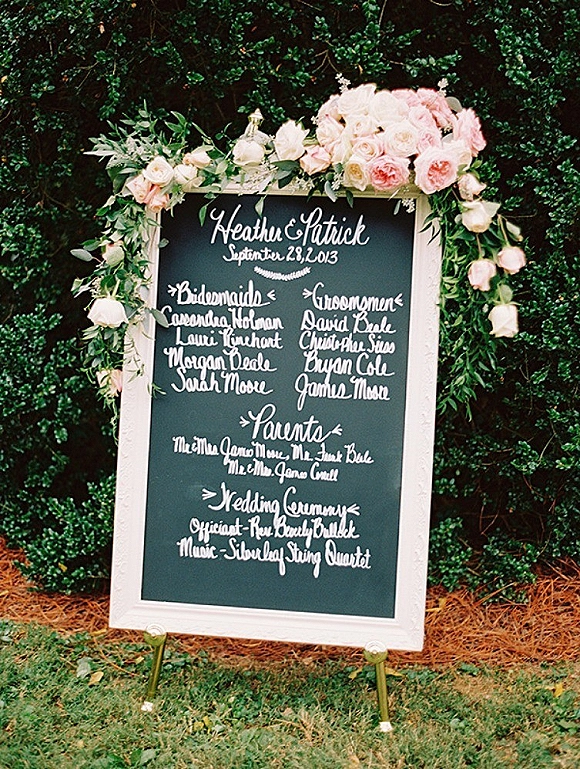 Heather & Patrick
September 28, 2013
Bridesmaids
Groomsmen
Cassandra Holman
David Beale
Lauri Rinehart
Christopher
Morgan Deale
Bryan Cole
Sarah Moore
James Moore
Parents
Mr & Mrs James Moore, Mr. Frank Beale
Mr & Mrs. James
Wedding Ceremony
Officiant - Rev. Beverly Bullock
Music - Silverleaf String Quartet